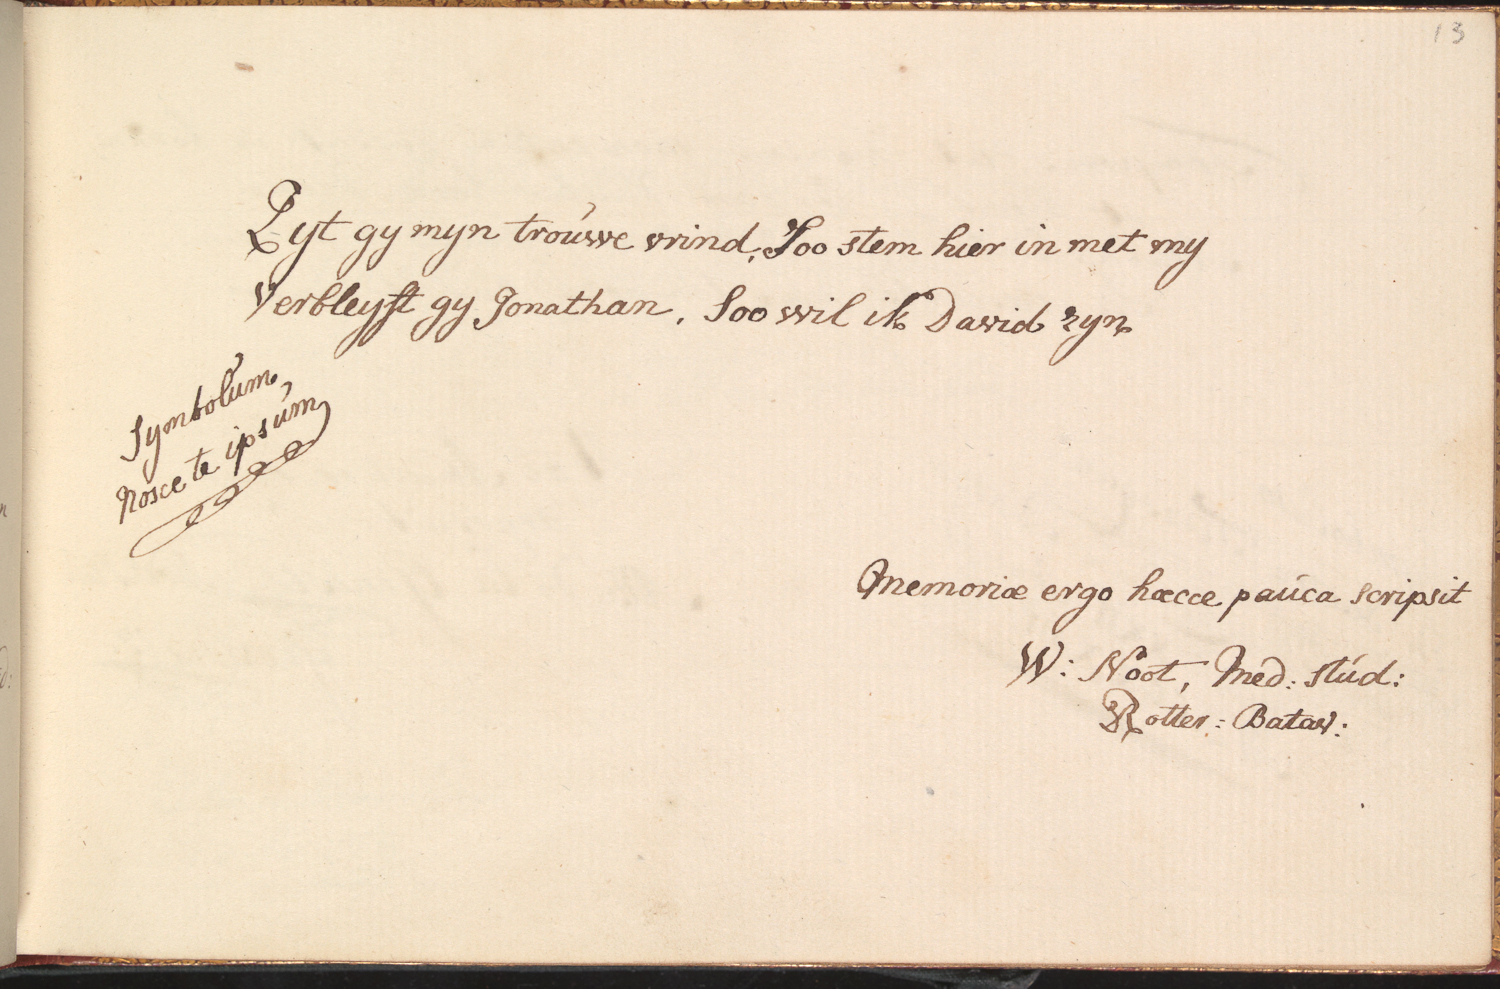 13
Zyt gy myn trouwe vrind, Soo stem hier in met my
Verbleyft gy Jonathan, Soo wil ik David zyn
Symbolum,
Nosce te ipsum
Memoriæ ergo hæcce pauca scripsit
W: Noot, Med: stud:
Rotter: Batav: